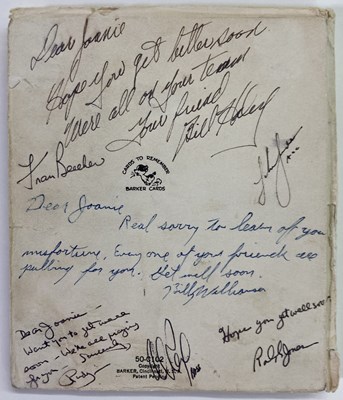 Dear Joanie
Hope you get better soon
We're all on your team
Your friend
Bill Haley
Fran Beecher
CARDS TO REMEMBER
BARKER CARDS
John
Dear Joanie
Real sorry to hear of your
misfortune. Every one of your friends are
pulling for you. Get well soon.
Billy Williamson
Dear Joanie -
Want you to get well
soon - We're all praying
for you - Sincerely
Rudy
50-6102
Copyright
BARKER, Cincinnati, O.
Patent Pending
Al
Hope you get well soon
Ralph Jones